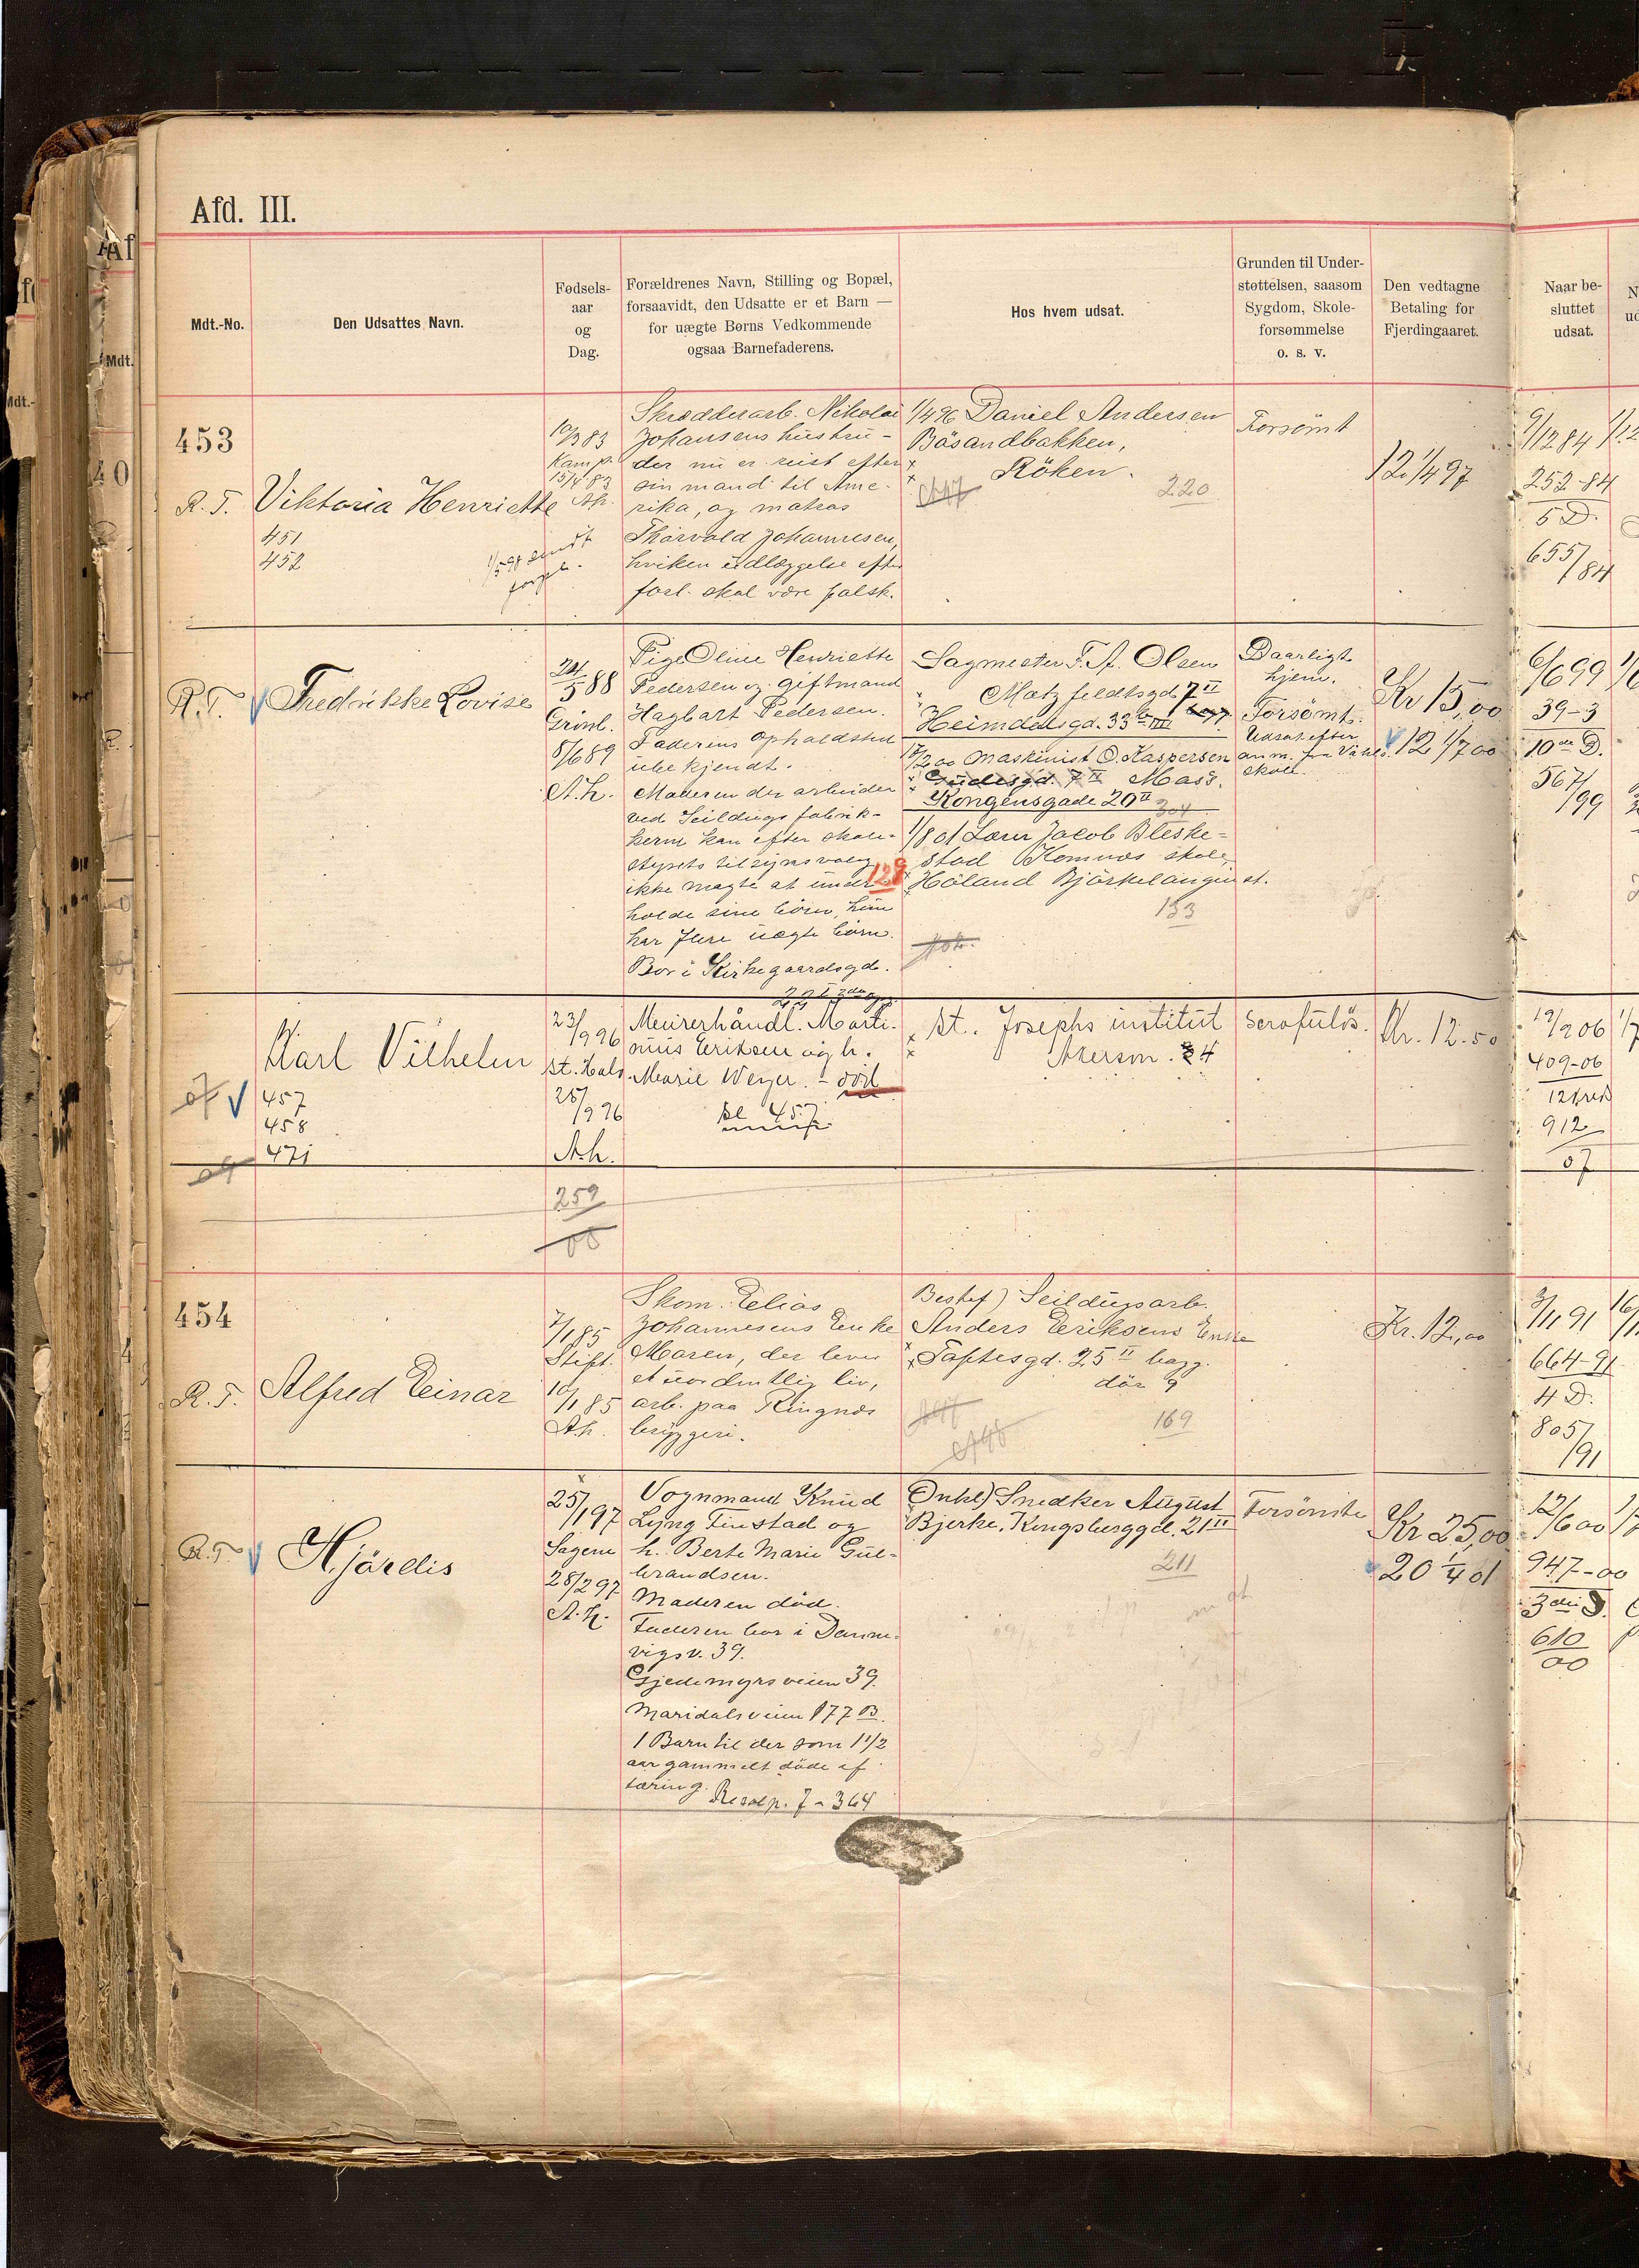 Afd. III.
Mdt.-No.
Den Udsattes Navn.
Fødsels-
aar
og
Dag.
Forældrenes Navn, Stilling og Bopæl,
forsaavidt, den Udsatte er et Barn —
for uægte Børns Vedkommende
ogsaa Barnefaderens.
Hos hvem udsat.
Grunden til Under-
støttelsen, saasom
Sygdom, Skole-
forsømmelse
o. s. v.
Den vedtagne
Betaling for
Fjerdingaaret.
Naar be-
sluttet
udsat.
453
R. T. Viktoria Henriette
451
452
1/5 98 sendt
10/3 83
Kamp.
15/4 83
Ah.
Skrædderarb. Nikolai
Johansens hustru -
der nu er reist efter
sin mand til Ame-
rika, og matros
Thorvald Johannesen,
hvilken udlæggelse efter
forl. skal være falsk.
1/4 96 Daniel Andersen
Bösandbakken,
Röken.
220
Forsömt
12 1/4 97
9/12 84
252-84
5 D.
655/84
R. T. Fredrikke Lovise
24/5 88
Grönl.
8/6 89
A. h.
Pige Oline Henriette
Pedersen og giftmand
Hagbart Pedersen.
Faderens Opholdsted
ubekjendt.
Moderen der arbeider
ved Seildugsfabrik-
kerne kan efter skole-
styrets tilsynsvalg
ikke magte at under-
holde sine börn, hun
har flere uægte börn.
Bor i Kirkegaardsgd.
Sagmester F. A. Olsen
Matzfeldtsgd. 7 II
Heimdalsgd. 33 b III
17/2 00 Maskinist O. Kaspersen
Gudesgd. 7 II Mass.
Kongensgade 20 II
304
1/8 01 Lærer Jacob Bleske-
stad Komnæs skole,
128 Höland Björkelangen st.
153
Daarligt
hjem.
Forsömt.
Udsat efter
anm. fra Vahls
skole.
Kr 15,00
12 1/7 00
6/6 99
39-3
10de D.
567/99
Karl Vilhelm
07
457
458
471
09
23/9 96
St. Halv.
25/9 96
A.h.
259
08
Meierihandl. Marti-
nius Eriksen og h.
Marie Weyer. - död
se 457
St. Josephs institut
Akersv. 4
Scrofulös.
Kr. 12.50
19/9 06
409-06
912
07
454
R. T. Alfred Einar
7/1 85
Stift.
10/1 85
A.h.
Skom. Elias
Johannesens Enke
Maren, der lever
et uordentlig liv,
arb. paa Ringnæs
bryggeri.
Bestef.) Seildugsarb.
Anders Eriksens Enke
Taftesgd. 25 II bagg.
dör 9
169
Kr. 12,00
3/11 91
664-91
4 D.
805/91
R. T. Hjördis
25/1 97
Sagene
28/2 97
A. h.
Vognmand Knud
Lyng Finstad og
h. Berte Marie Gul-
brandsen.
Moderen död.
Faderen bor i Darre-
vigsv. 39.
Gjedemyrsveien 39.
Maridalsveien 177 B.
1 Barn til der som 1 1/2
aar gammelt döde af
tæring. Resolp. 7 - 364
Onkel) Snedker August
Bjerke, Kongsberggd. 21 II
211
Forsömte
Kr 25,00
20 1/4 01
12/6 00
947-00
3die D.
610
00